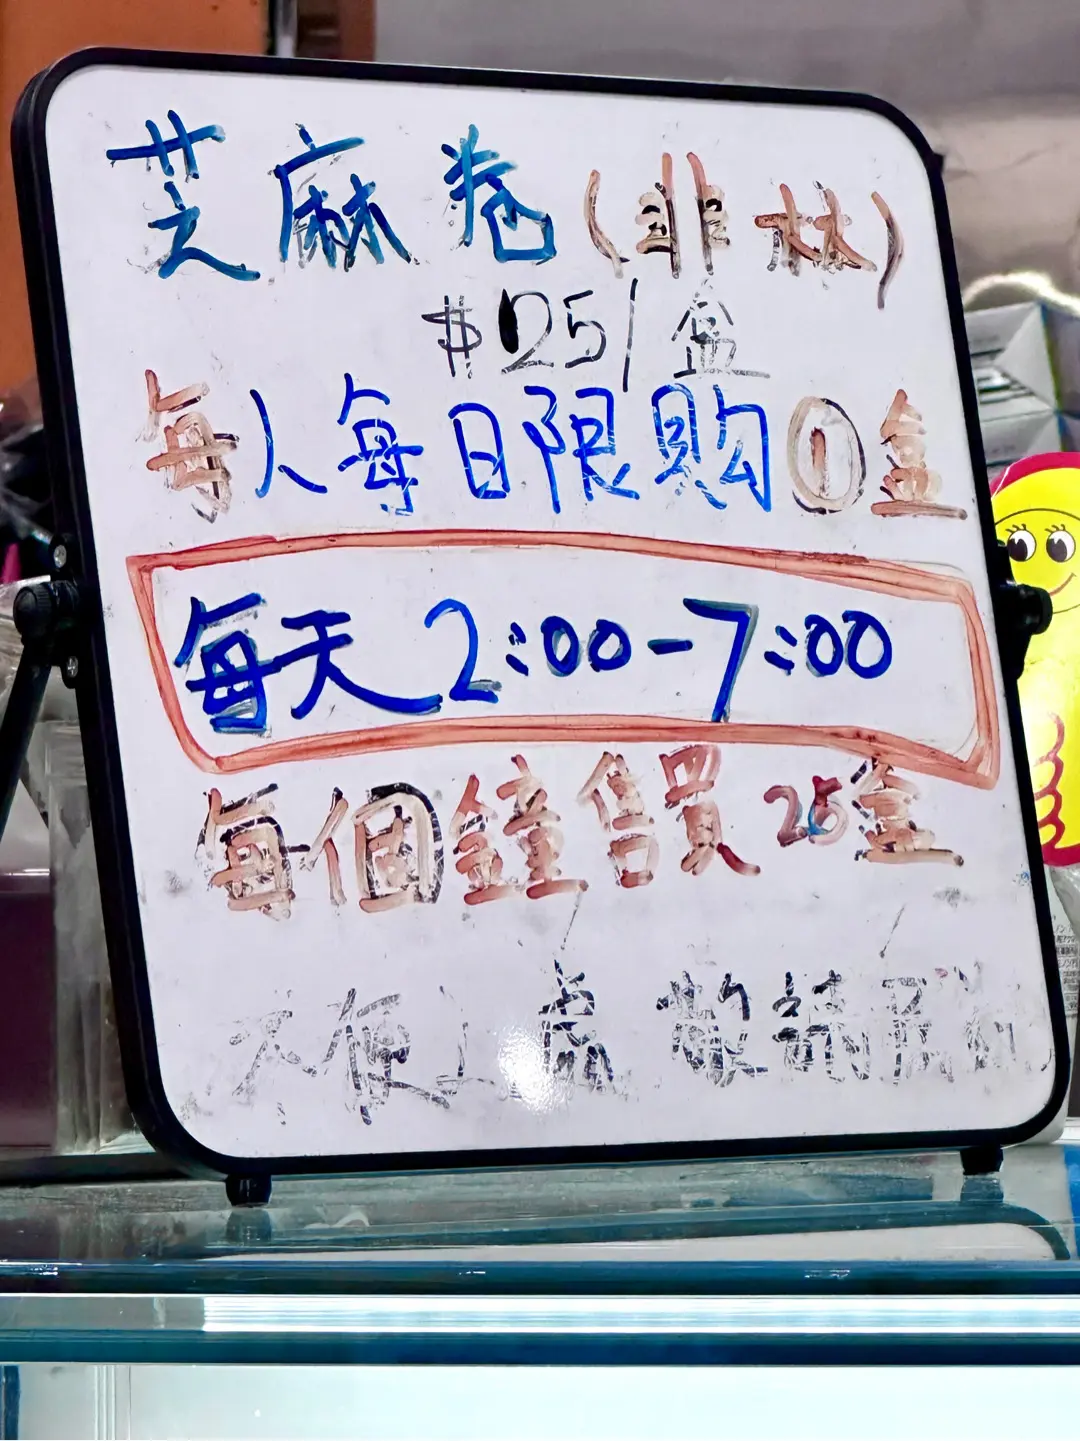 芝麻卷(菲林)
$25/盒
每人每日限购①盒
每天2:00-7:00
每個鐘售買25盒
不便之處 敬請原諒